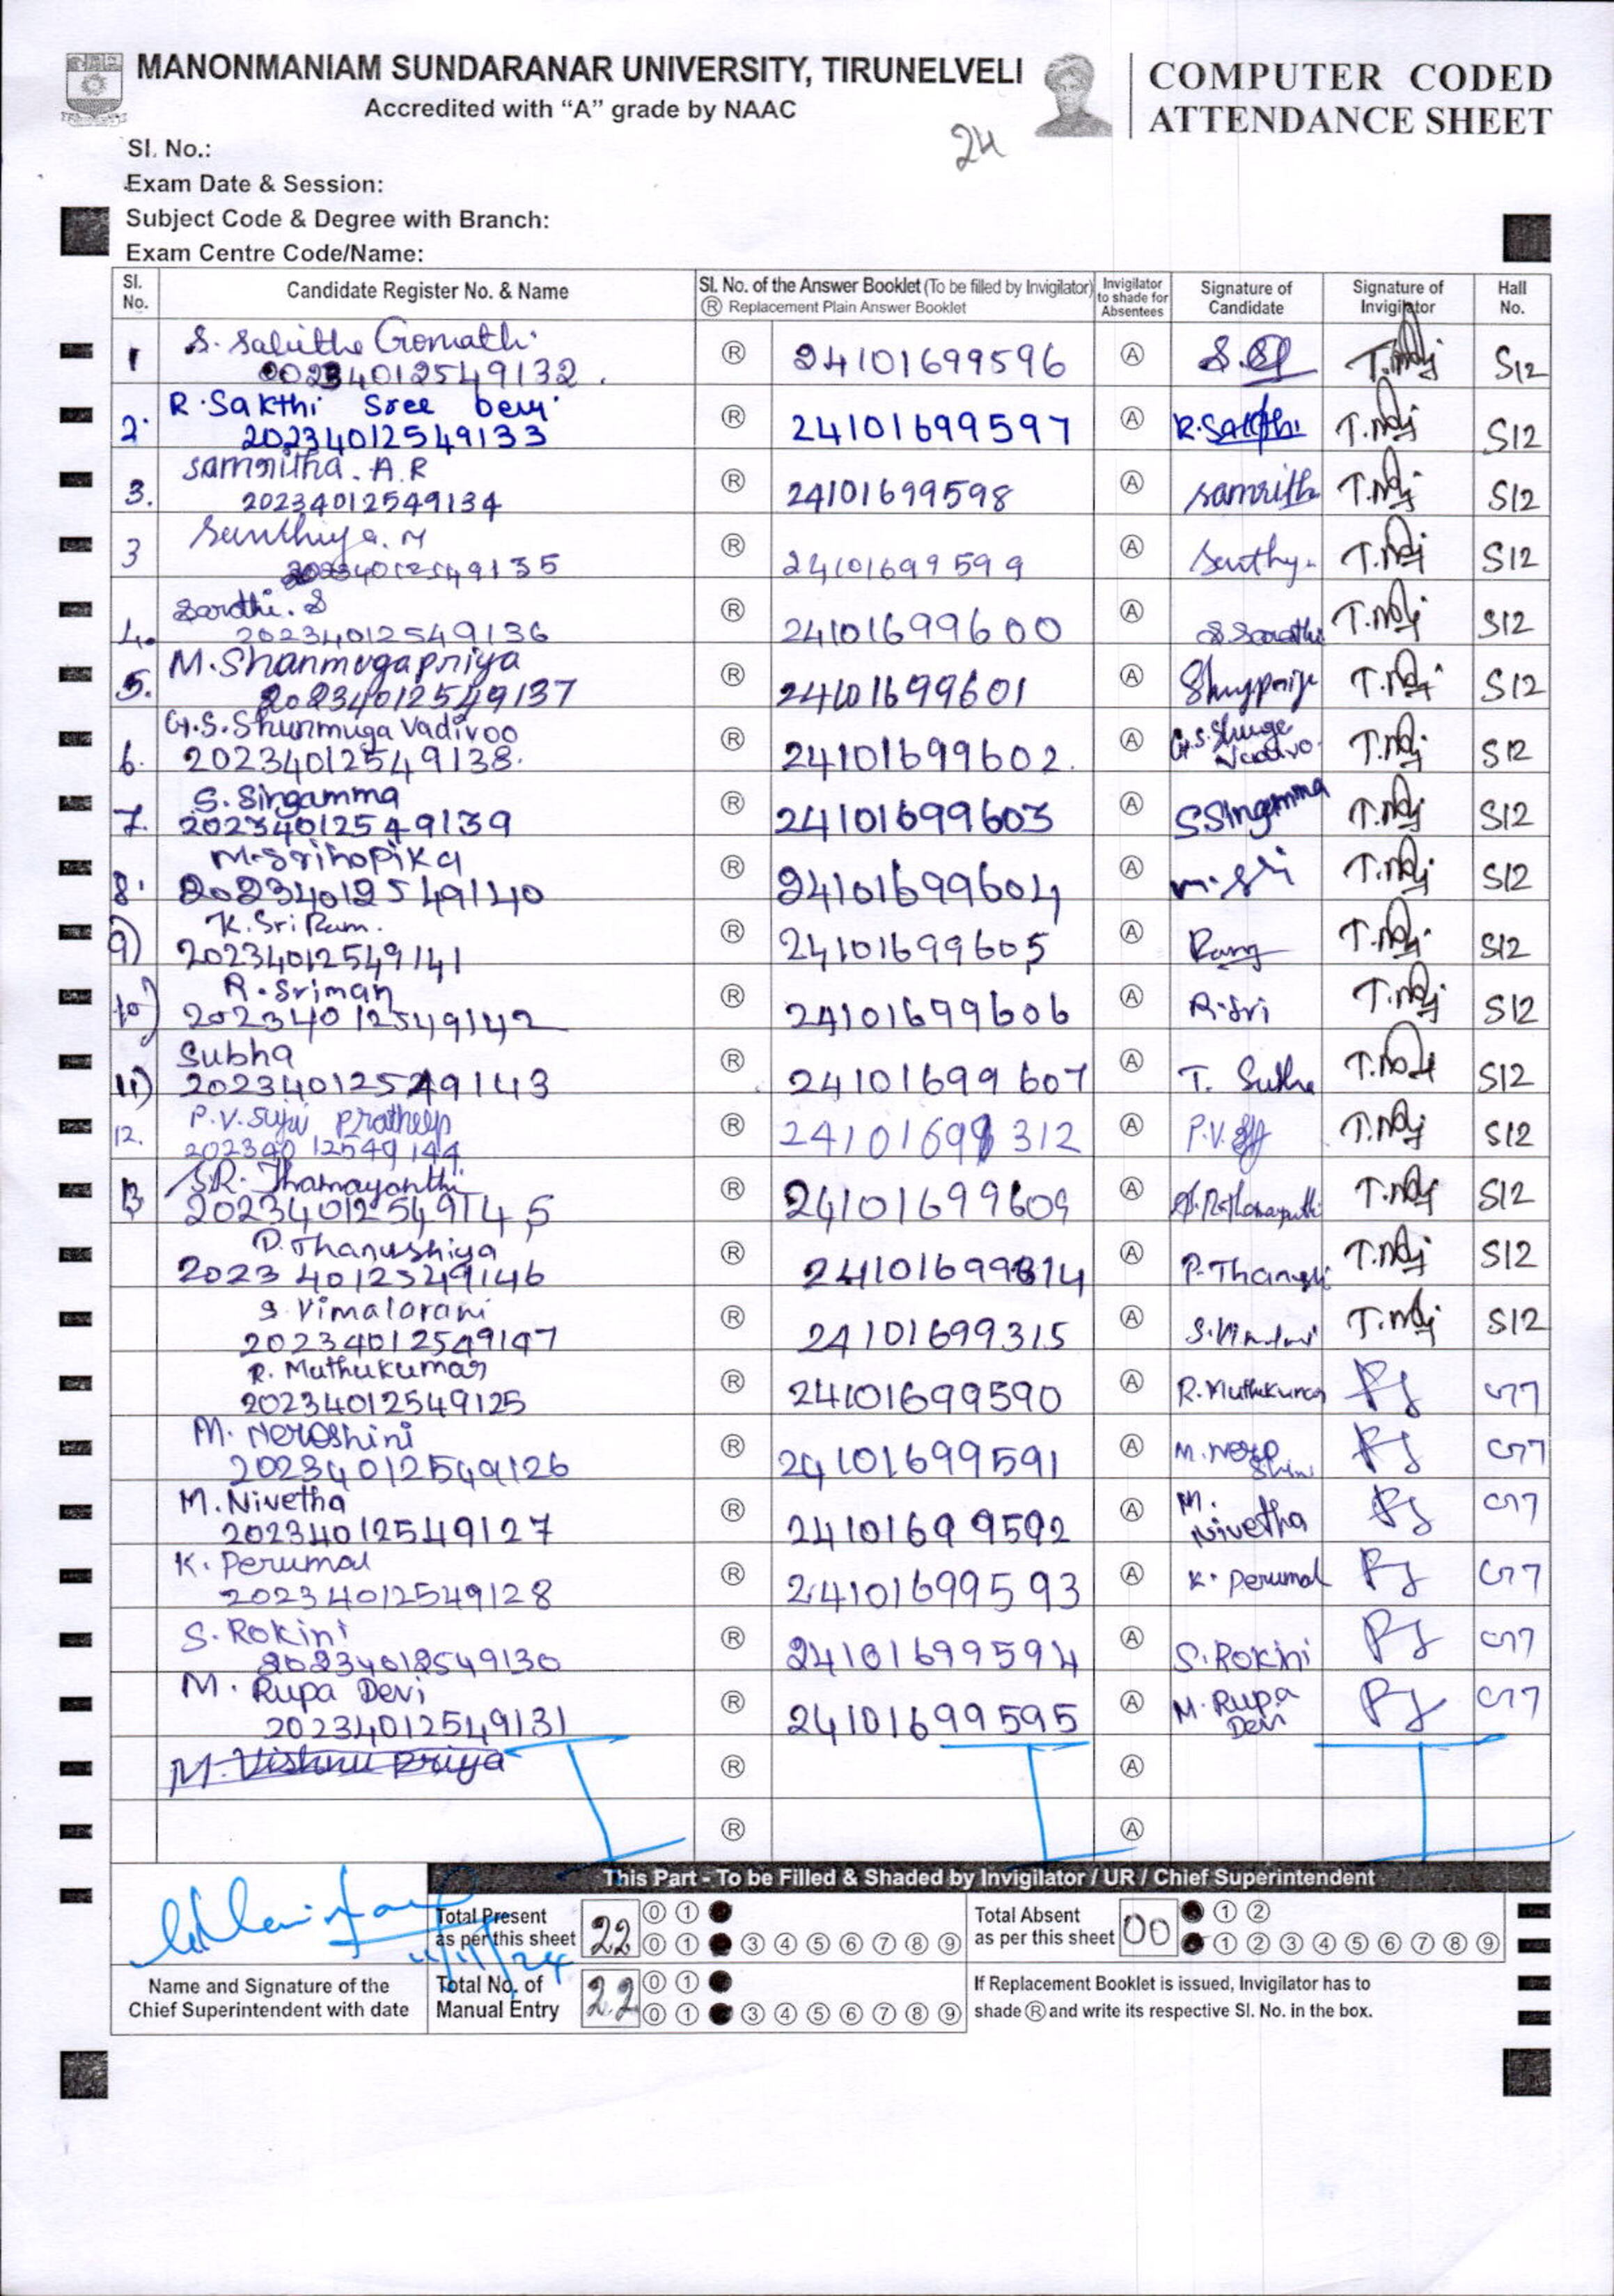 MANONMANIAM SUNDARANAR UNIVERSITY, TIRUNELVELI
Accredited with "A" grade by NAAC
COMPUTER CODED
ATTENDANCE SHEET
24
Sl. No.:
Exam Date & Session:
Subject Code & Degree with Branch:
Exam Centre Code/Name:
Sl. No. Candidate Register No. & Name Sl. No. of the Answer Booklet (To be filled by Invigilator) Ⓡ Replacement Plain Answer Booklet Invigilator to shade for Absentees Signature of Candidate Signature of Invigilator Hall No.
S. Sabitha Gomathi
1 20234012549132. Ⓡ 24101699596 Ⓐ S12
R. Sakthi Sree
2. 20234012549133 Ⓡ 24101699597 Ⓐ R. Sakthi S12
Samritha. A.R
3. 20234012549134 Ⓡ 24101699598 Ⓐ S12
Santhiya. M
3 20234012549135 Ⓡ 24101699599 Ⓐ S12
Sarathi. S
4. 20234012549136 Ⓡ 24101699600 Ⓐ S. Sarathi S12
M. Shanmugapriya
5. 20234012549137 Ⓡ 24101699601 Ⓐ S12
G.S. Shunmuga Vadivoo
6. 20234012549138. Ⓡ 24101699602. Ⓐ S12
S. Singamma
7. 20234012549139 Ⓡ 24101699603 Ⓐ S Singamma S12
M. Srihopika
8. 20234012549140 Ⓡ 24101699604 Ⓐ M. Sri S12
K. Sri Ram.
9) 20234012549141 Ⓡ 24101699605 Ⓐ S12
R. Sriman
10) 20234012549142 Ⓡ 24101699606 Ⓐ R. Sri S12
Subha
11) 20234012549143 Ⓡ 24101699607 Ⓐ T. Subha S12
P.V. Suji Pratheep
12. 20234012549144 Ⓡ 24101699312 Ⓐ P.V. S12
S.R. Thamayanthi
13 20234012549145 Ⓡ 24101699609 Ⓐ S12
P. Thanushiya
20234012549146 Ⓡ 24101699314 Ⓐ S12
S. Vimalarani
20234012549147 Ⓡ 24101699315 Ⓐ S12
R. Muthukumar
20234012549125 Ⓡ 24101699590 Ⓐ R. Muthukumar
M. Neroshini
20234012549126 Ⓡ 24101699591 Ⓐ M. Neroshini
M. Nivetha
20234012549127 Ⓡ 24101699592 Ⓐ M. Nivetha
K. Perumal
20234012549128 Ⓡ 24101699593 Ⓐ K. Perumal
S. Rokini
20234012549130 Ⓡ 24101699594 Ⓐ S. Rokini
M. Rupa Devi
20234012549131 Ⓡ 24101699595 Ⓐ M. Rupa Devi
M. Vishnu priya Ⓡ Ⓐ
Ⓡ Ⓐ
This Part - To be Filled & Shaded by Invigilator / UR / Chief Superintendent
Total Present as per this sheet 22
Total Absent as per this sheet 00
Name and Signature of the Chief Superintendent with date
Total No. of Manual Entry 22
If Replacement Booklet is issued, Invigilator has to
shade Ⓡ and write its respective Sl. No. in the box.